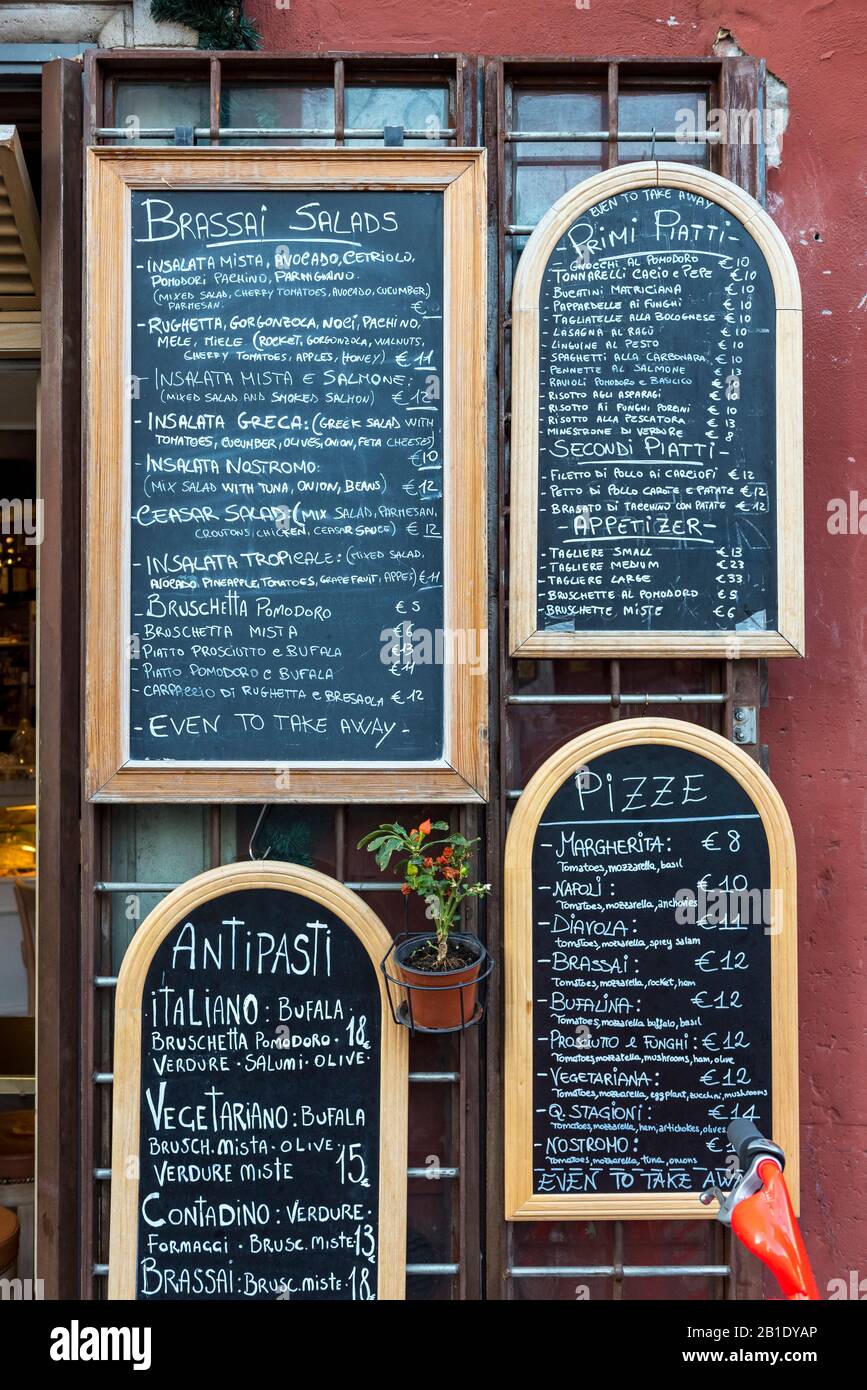 BRASSAI SALADS
- INSALATA MISTA, AVOCADO, CETRIOLO,
POMODORI PACHINO, PARMIGIANO.
(MIXED SALAD, CHERRY TOMATOES, AVOCADO, CUCUMBER,
PARMESAN. €
- RUGHETTA, GORGONZOLA, NOCI, PACHINO,
MELE, MIELE (ROCKET, GORGONZOLA, WALNUTS,
CHERRY TOMATOES, APPLES, HONEY) € 11
- INSALATA MISTA E SALMONE:
(MIXED SALAD AND SMOKED SALMON) € 12
- INSALATA GRECA: (GREEK SALAD WITH
TOMATOES, CUCUMBER, OLIVES, ONION, FETA CHEESES)
€ 10
- INSALATA NOSTROMO:
(MIX SALAD WITH TUNA, ONION, BEANS) € 12
- CEASAR SALAD: (MIX SALAD, PARMESAN,
CROUTONS, CHICKEN, CEASAR SAUCE) € 12
- INSALATA TROPICALE: (MIXED SALAD,
AVOCADO, PINEAPPLE, TOMATOES, GRAPE FRUIT, APPES) € 11
- BRUSCHETTA POMODORO € 5
BRUSCHETTA MISTA € 6
PIATTO PROSCIUTTO E BUFALA € 13
PIATTO POMODORO E BUFALA € 11
- CARPACCIO DI RUGHETTA E BRESAOLA € 12
- EVEN TO TAKE AWAY -
EVEN TO TAKE AWAY
- PRIMI PIATTI -
- GNOCCHI AL POMODORO € 10
TONNARELLI CACIO E PEPE € 10
BUCATINI MATRICIANA € 10
PAPPARDELLE AI FUNGHI € 10
TAGLIATELLE ALLA BOLOGNESE € 10
LASAGNA AL RAGÙ € 10
LINGUINE AL PESTO € 10
SPAGHETTI ALLA CARBONARA € 10
PENNETTE AL SALMONE € 13
RAVIOLI POMODORO E BASILICO € 10
RISOTTO AGLI ASPARAGI € 10
RISOTTO AI FUNGHI PORCINI € 10
RISOTTO ALLA PESCATORA € 13
MINESTRONE DI VERDURE € 8
- SECONDI PIATTI -
FILETTO DI POLLO AI CARCIOFI € 12
PETTO DI POLLO CAROTE E PATATE € 12
BRASATO DI TACCHINO CON PATATE € 12
- APPETIZER -
- TAGLIERE SMALL € 13
- TAGLIERE MEDIUM € 23
- TAGLIERE LARGE € 33
- BRUSCHETTE AL POMODORO € 5
- BRUSCHETTE MISTE € 6
PIZZE
- MARGHERITA: € 8
Tomatoes, mozzarella, basil
- NAPOLI: € 10
Tomatoes, mozzarella, anchovies
- DIAVOLA: € 11
tomatoes, mozzarella, spicy salam
- BRASSAI: € 12
Tomatoes, mozzarella, rocket, ham
- BUFALINA: € 12
Tomatoes, mozzarella buffalo, basil
- PROSCIUTO E FUNGHI: € 12
Tomatoes, mozzatella, mushrooms, ham, olive
- VEGETARIANA: € 12
Tomatoes, mozzarella, egg plant, zucchini, mushrooms
- Q. STAGIONI: € 14
Tomatoes, mozzarella, ham, artichokes, olives
- NOSTROMO:
Tomatoes, mozzarella, tuna, onions
EVEN TO TAKE AWAY
ANTIPASTI
ITALIANO: BUFALA
BRUSCHETTA POMODORO. 18€
VERDURE. SALUMI. OLIVE.
VEGETARIANO: BUFALA
BRUSCH. MISTA. OLIVE
VERDURE MISTE 15€
CONTADINO: VERDURE
FORMAGGI. BRUSC. MISTE. 13€
BRASSAI: BRUSC. MISTE. 18€
alamy
Image ID: 2B1DYAP
www.alamy.com